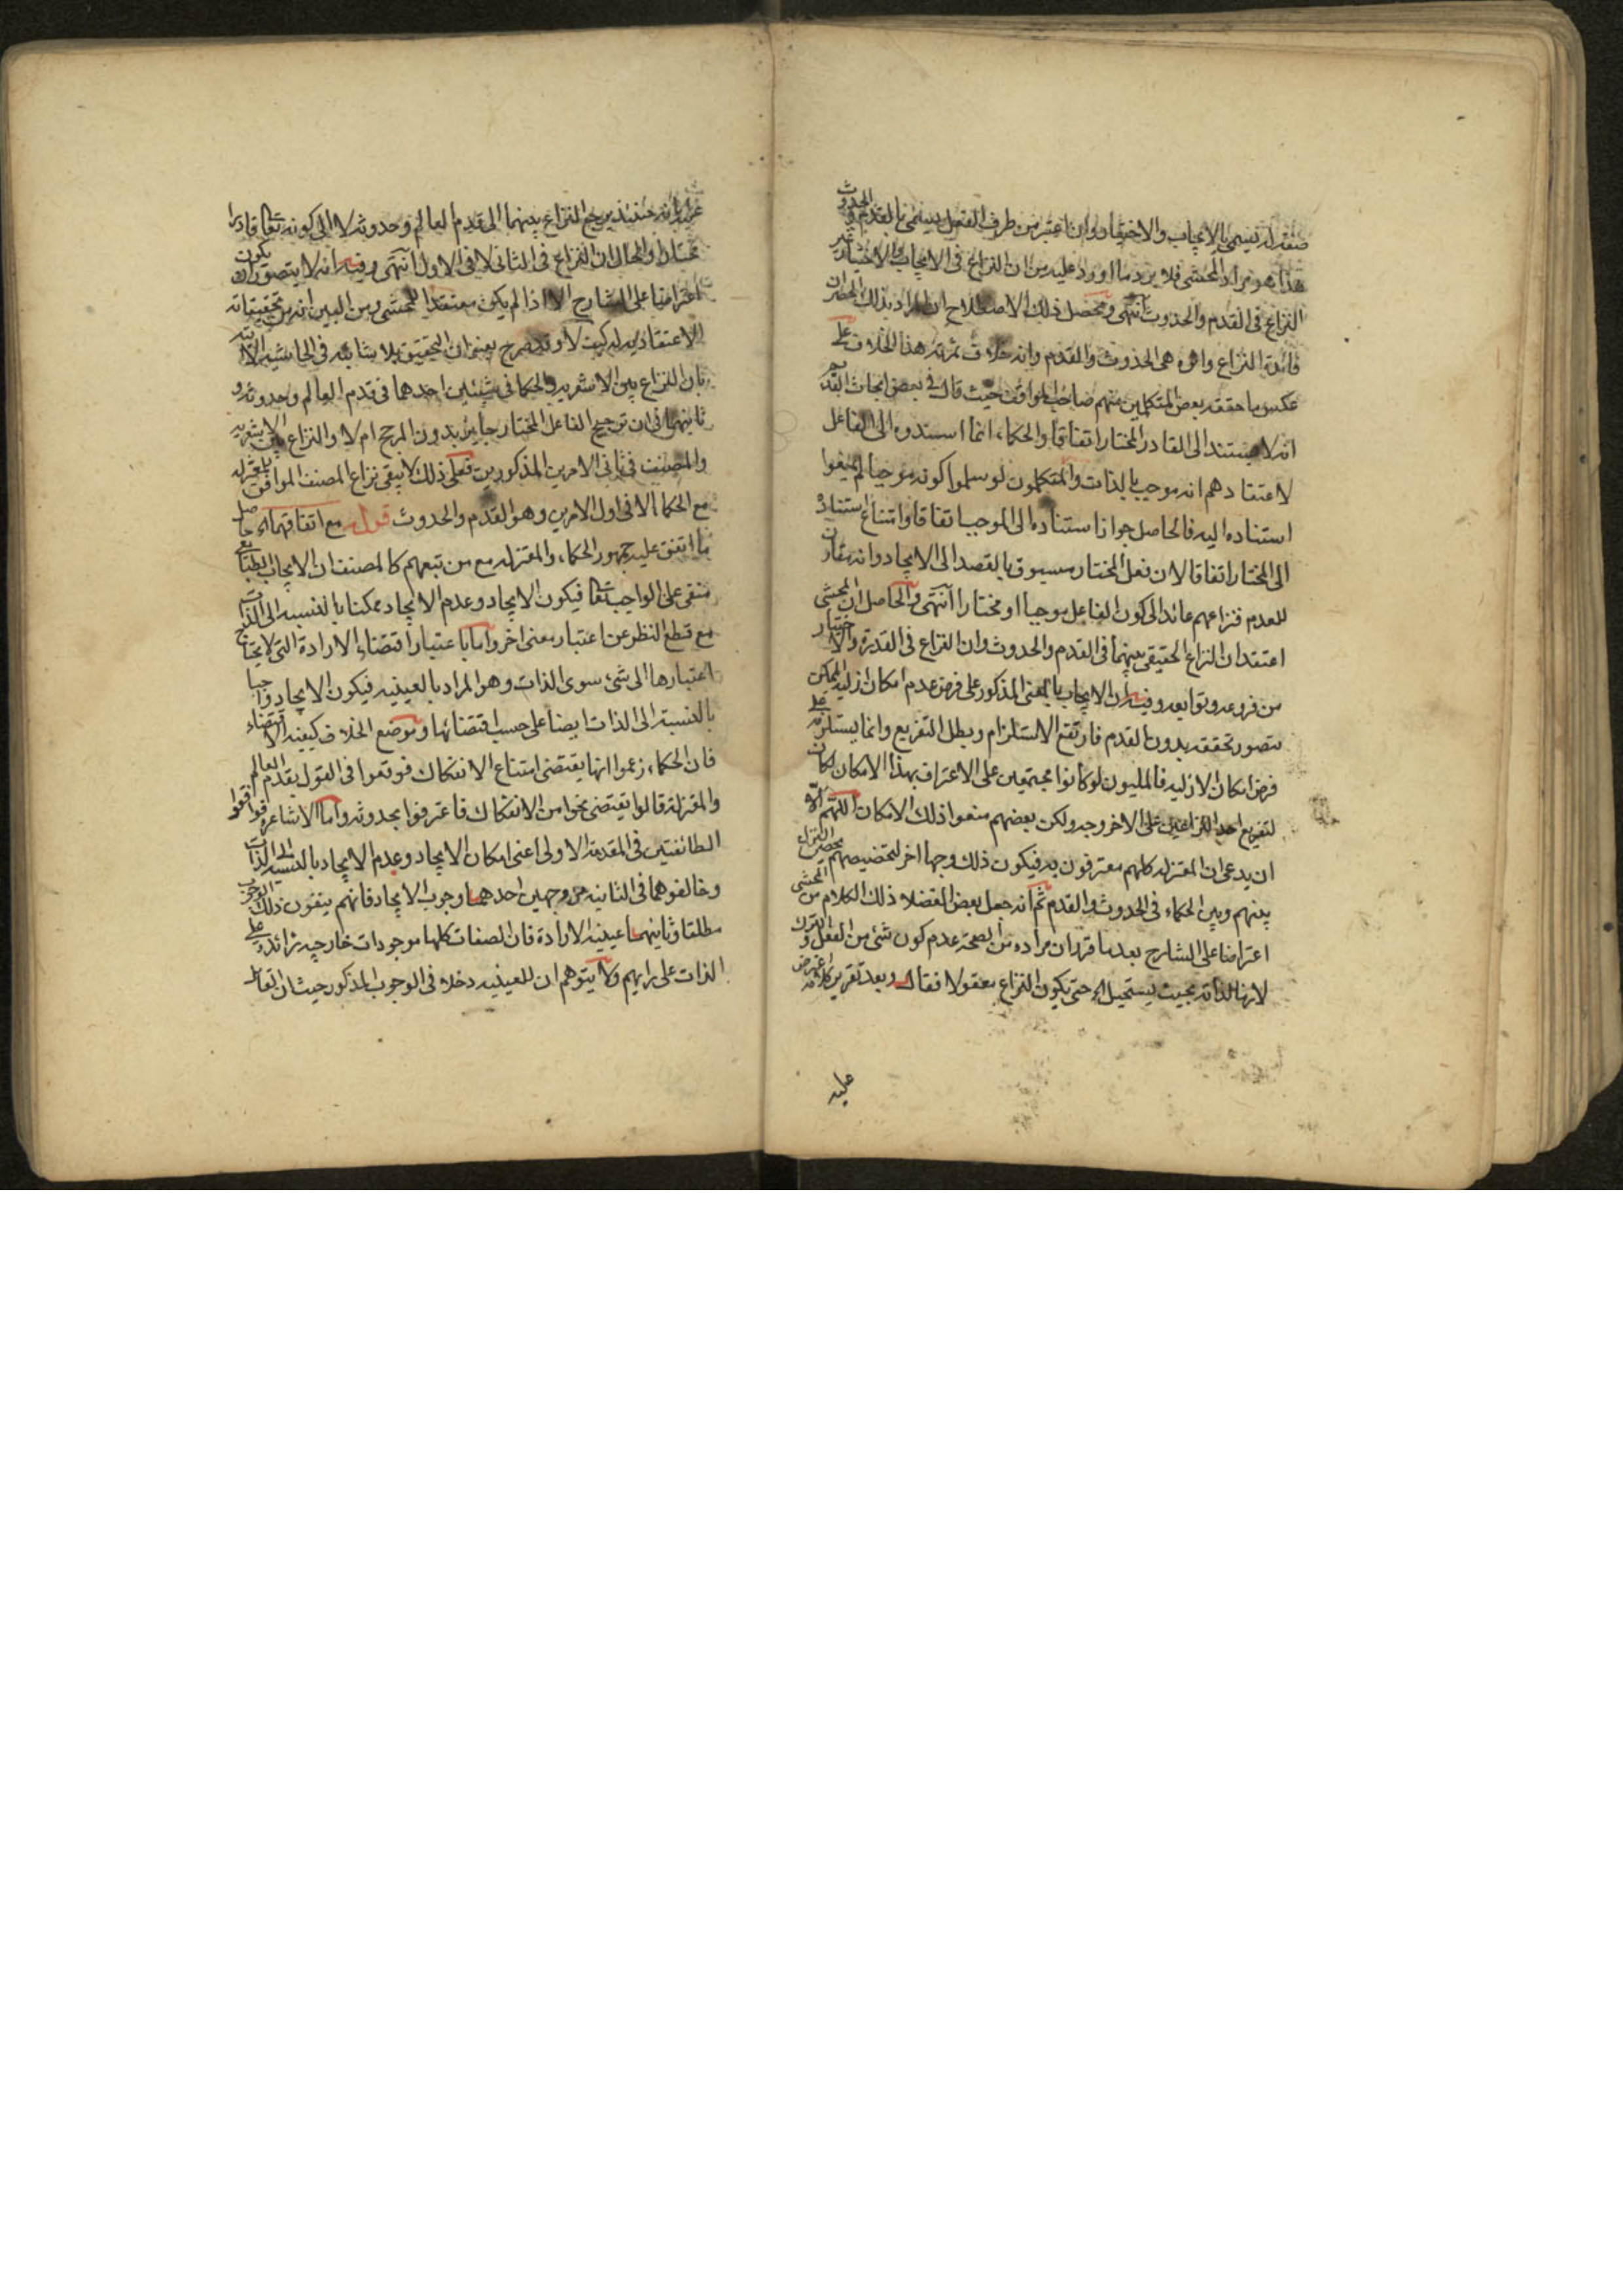 صفة له يسمى بالايجاب والاختيار وان اعتبر من طرف الفعل يسمى بالقدم والحدوث
هذا هو مراد المحشى فلا يرد ما اورد عليه من ان النزاع فى الايجاب والاختيار غير
النزاع فى القدم والحدوث انتهى ومحصل ذلك الاصطلاح ان المراد بذلك
فائدة النزاع هى الحدوث والقدم وانه خلاف ثمرته هذا الخلاف على
عكس ما حققه بعض المتكلمين منهم صاحب المواقف حيث قال فى بعض ابحاث القديم
انه لا يستند الى القادر المختار اتفاقا والحكماء انما اسندوه الى الفاعل
لاعتقادهم انه موجب بالذات والمتكلمون لو سلموا كونه موجبا لم يمنعوا
استناده اليه فالحاصل جواز استناده الى الموجب اتفاقا وامتناع استناده
الى المختار اتفاقا لان فعل المختار مسبوق بالقصد الى الايجاد وانه مقارن
للعدم فنزاعهم عائد الى كون الفاعل موجبا او مختارا انتهى والحاصل ان المحشى
اعتقد ان النزاع الحقيقى بينهما فى القدم والحدوث وان النزاع فى القدرة والاختيار
من فروعه وتوابعه وفيه ان الايجاب بالمعنى المذكور على فرض عدم امكان ازلية الممكن
يتصور تحققه بدون القدم فارتفع الاستلزام وبطل التفريع وانما يستلزمه على
فرض امكان الازلية فالمليون لو كانوا مجتمعين على الاعتراف بهذا الامكان لكان
لتفريع احد النزاعين على الاخر وجه ولكن بعضهم منعوا ذلك الامكان اللهم الا
ان يدعى ان المعتزلة كلهم معترفون به فيكون ذلك وجها اخر لتخصيصهم محض النزاع
بينهم وبين الحكماء فى الحدوث والقدم ثم انه جعل بعض الفضلا ذلك الكلام من المحشى
اعتراضا على الشارح بعد ما قرر ان مراده من الصحة عدم كون شئ من الفعل والترك
لازما لذاته بحيث يستحيل اه حتى يكون النزاع معقولا فقال وبعد تقرير كلامه اعترض
عليه
عليه بانه حينئذ يرجع النزاع بينهما الى قدم العالم وحدوثه لا الى كونه تعالى قادرا
مختارا والحال ان النزاع فى الثانى لا فى الاول انتهى وفيه انه لا يتصور كون
اعتراضا على الشارح الا اذا لم يكن معتقدا للمحشى ومن البين انه من تحقيقاته
الاعتقادية له كيف لا وقد صرح بعض ان التحقيق بلا شائبه فى الحاشية الاتية
بان النزاع بين الاشعرية والحكما فى شيئين احدهما فى قدم العالم وحدوثه و
ثانيهما فى ان ترجيح الفاعل المختار جايز بدون المرجح ام لا والنزاع بين الاشعرية
والمصنف فى ثانى الامرين المذكورين فعلى ذلك لا يبقى نزاع المصنف الموافق للمعتزلة
مع الحكما الا فى اول الامرين وهو القدم والحدوث قوله مع اتفاقهما اه حاصل
ما اتفق عليه جمهور الحكماء والمعتزلة مع من تبعهم كالمصنف ان الايجاب
منفى على الواجب تعالى فيكون الايجاد وعدم الايجاد ممكنا بالنسبة الى الذات
مع قطع النظر عن اعتبار معنى اخر واما باعتبار اقتضاء الارادة التى لا يحتاج
اعتبارها الى شئ سوى الذات وهو المراد بالعينية فيكون الايجاد واجبا
بالنسبة الى الذات ايضا على حسب اقتضائها وموضع الخلاف كيفية الاقتضاء
فان الحكماء زعموا انها يقتضى امتناع الانفكاك فوقعوا فى القول بقدم العالم
والمعتزلة قالوا يقتضى نحوا من الانفكاك فاعترفوا بحدوثه واما الاشاعرة فوافقوا
الطائفتين فى المقدمة الاولى اعنى امكان الايجاد وعدم الايجاد بالنسبة الى الذات
وخالفوهما فى الثانية من وجهين احدهما وجوب الايجاد فانهم ينفون ذلك الوجوب
مطلقا وثانيهما عينية الارادة فان الصفات كلها موجودات خارجية زائدة على
الذات على رايهم ولا يتوهم ان للعينية دخلا فى الوجوب المذكور حيث ان القائل